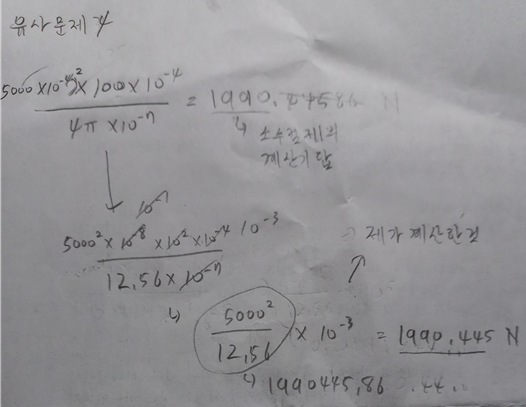 유사문제 4
(5000×10⁻⁴)²×100×10⁻⁴ / 4π×10⁻⁷ = 1990.44586 N
↳ 소수점 제외
계산기 답
5000²×10⁻⁸×10²×10⁻⁴ / 12.56×10⁻⁷ 10⁻¹ 10⁻³
→ 제가 계산한것
↳ 5000² / 12.56 × 10⁻³ = 1990.445 N
↳ 1990445.86